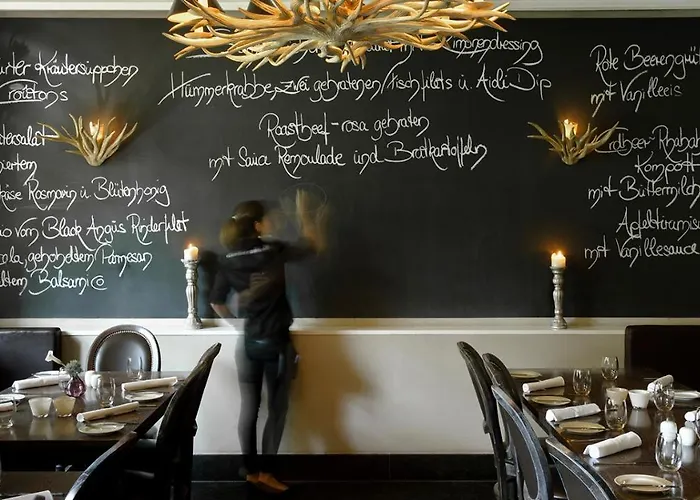 Kräutersüppchen
Croutons
Rosmarin u. Blütenhonig
vom Black Angus Rinderfilet
gehobeltem Parmesan
altem Balsamico
Hummerkrabbe, zwei gebratenen Fischfilets u. Aioli Dip
Roastbeef-rosa gebraten
mit Sauce Remoulade und Bratkartoffeln
Rote Beerengrüt
mit Vanilleeis
Kompott
mit Buttermilch
Apfeltiramisu
mit Vanillesauce